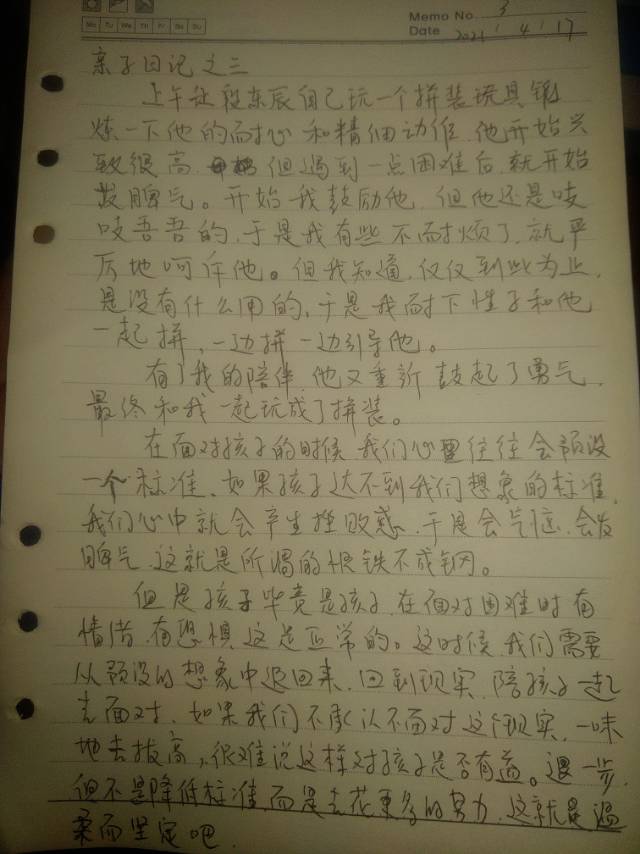 Memo No. 3
Mo Tu We Th Fr Sa Su
Date 2021 / 4 / 17
亲子日记之三
上午让程东辰自己玩一个拼装玩具锻
炼一下他的耐心和精细动作,他开始兴
致很高,但遇到一点困难后,就开始
发脾气。开始我鼓励他,但他还是吱
吱吾吾的,于是我有些不耐烦了,就严
厉地呵斥他。但我知道,仅仅到此为止,
是没有什么用的,于是我耐下性子和他
一起拼,一边拼一边引导他。
有了我的陪伴,他又重新鼓起了勇气,
最终和我一起玩成了拼装。
在面对孩子的时候,我们心里往往会预设
一个标准,如果孩子达不到我们想象的标准,
我们心中就会产生挫败感,于是会气恼,会发
脾气,这就是所谓的恨铁不成钢。
但是孩子毕竟是孩子,在面对困难时有
情绪,有恐惧,这是正常的。这时候,我们需要
从预设的想象中退回来,回到现实,陪孩子一起
去面对,如果我们不承认不面对这个现实,一味
地去拔高,很难说这样对孩子是否有益。退一步,
但不是降低标准,而是去花更多的努力,这就是温
柔而坚定吧.